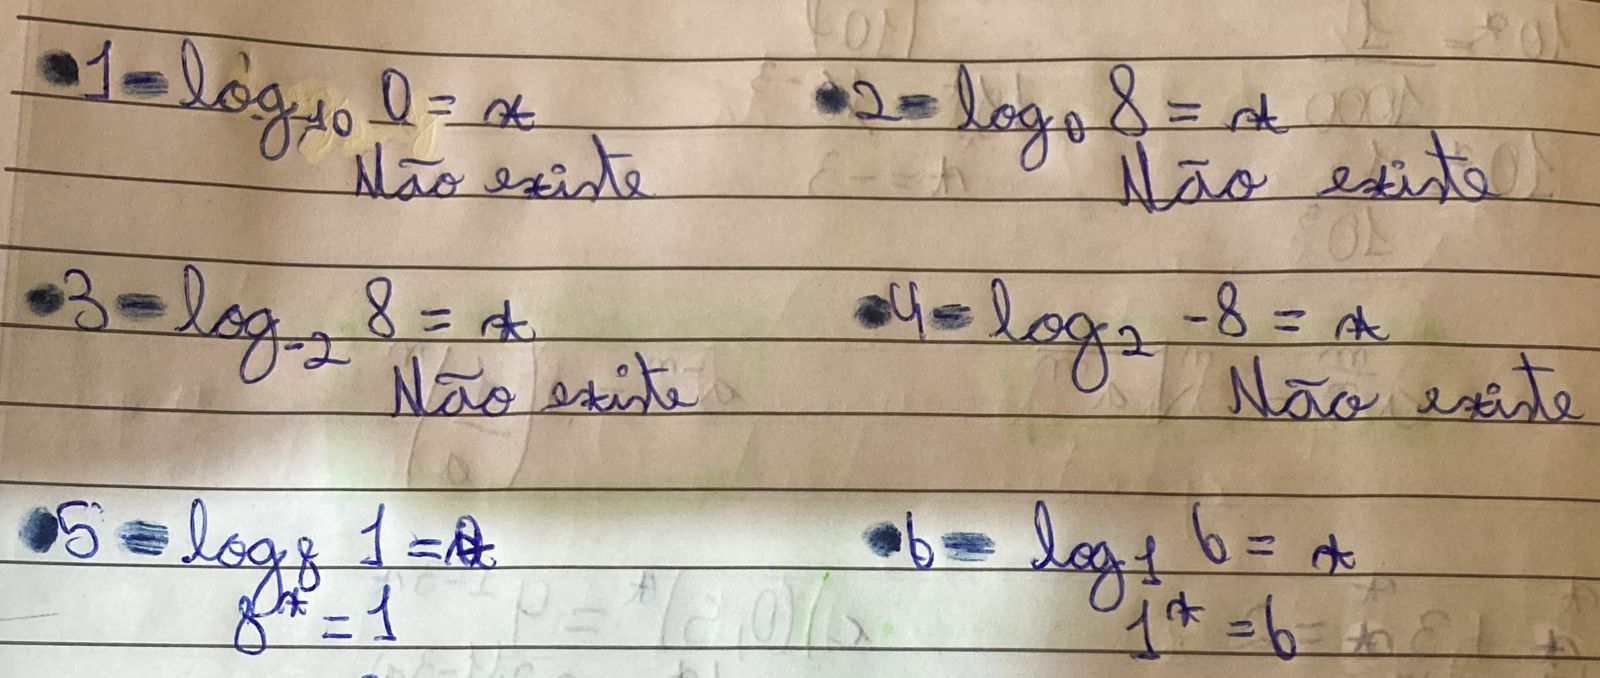 •1 = log₁₀ 0 = x
Não existe
•2 = log₀ 8 = x
Não existe
•3 = log₋₂ 8 = x
Não existe
•4 = log₂ -8 = x
Não existe
•5 = log₈ 1 = x
8ˣ = 1
•6 = log₁ 6 = x
1ˣ = 6